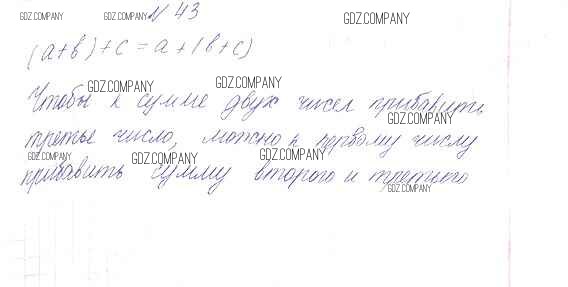 GDZ.COMPANY GDZ.COMPANY № 43 GDZ.COMPANY
(а+в)+с=а+(в+с)
GDZ.COMPANY GDZ.COMPANY
Чтобы к сумме двух чисел прибавить
GDZ.COMPANY
третье число, можно к первому числу
GDZ.COMPANY GDZ.COMPANY GDZ.COMPANY
прибавить сумму второго и третьего
GDZ.COMPANY